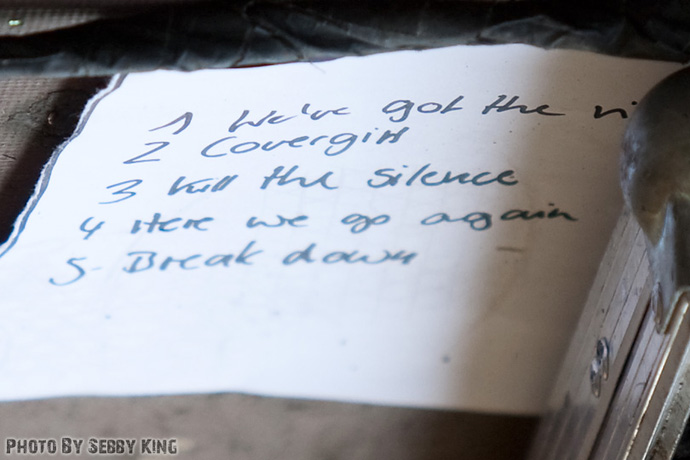 1 We've got the
2 Covergirl
3 Kill the Silence
4 Here we go again
5- Break down
PHOTO BY SEBBY KING